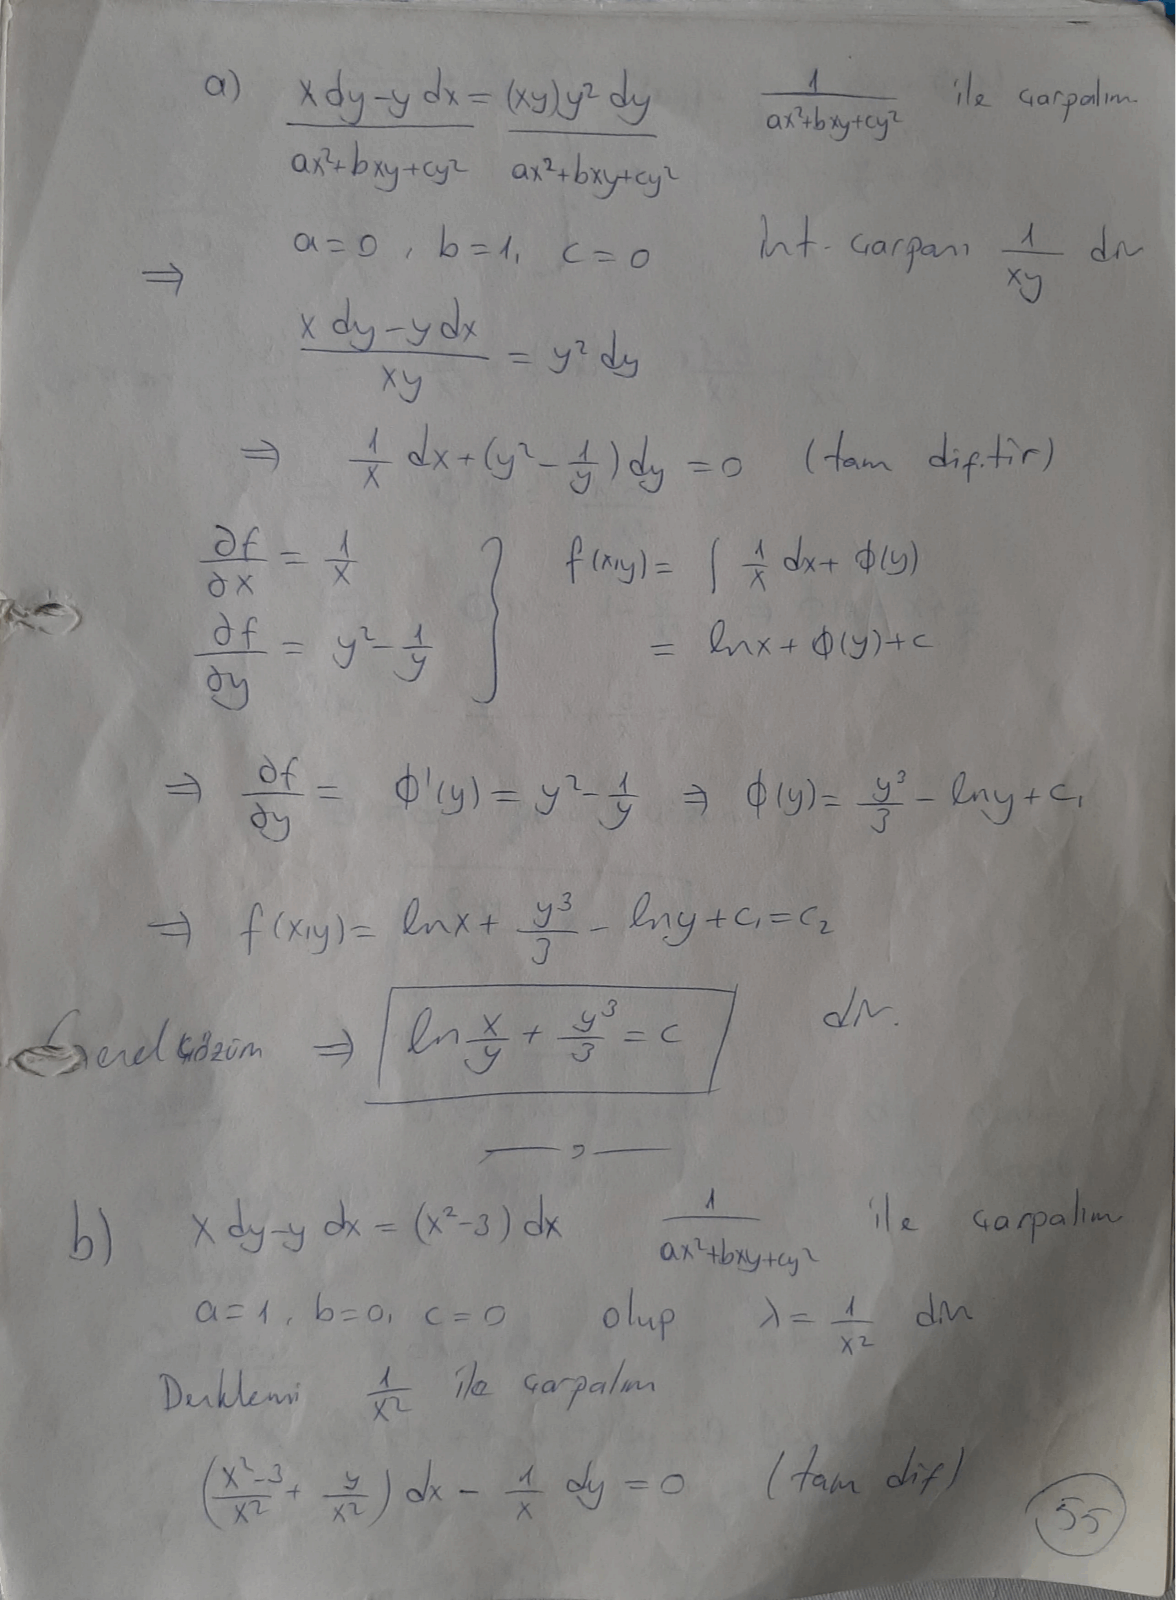 a) (x dy - y dx)/(ax²+bxy+cy²) = (xy)y² dy/(ax²+bxy+cy²) 1/(ax²+bxy+cy²) ile çarpalım
⇒ a=0, b=1, c=0 İnt. çarpanı 1/(xy) dır
(x dy - y dx)/(xy) = y² dy
⇒ 1/x dx + (y² - 1/y) dy = 0 (tam dif.tir)
∂f/∂x = 1/x } f(x,y) = ∫ 1/x dx + ϕ(y)
∂f/∂y = y² - 1/y = lnx + ϕ(y) + c
⇒ ∂f/∂y = ϕ'(y) = y² - 1/y ⇒ ϕ(y) = y³/3 - lny + c₁
⇒ f(x,y) = lnx + y³/3 - lny + c₁ = c₂
Genel çözüm ⇒ ln x/y + y³/3 = c dır.
b) x dy - y dx = (x²-3) dx 1/(ax²+bxy+cy²) ile çarpalım
a=1, b=0, c=0 olup λ = 1/x² dır
Denklemi 1/x² ile çarpalım
((x²-3)/x² + y/x²) dx - 1/x dy = 0 (tam dif)
55